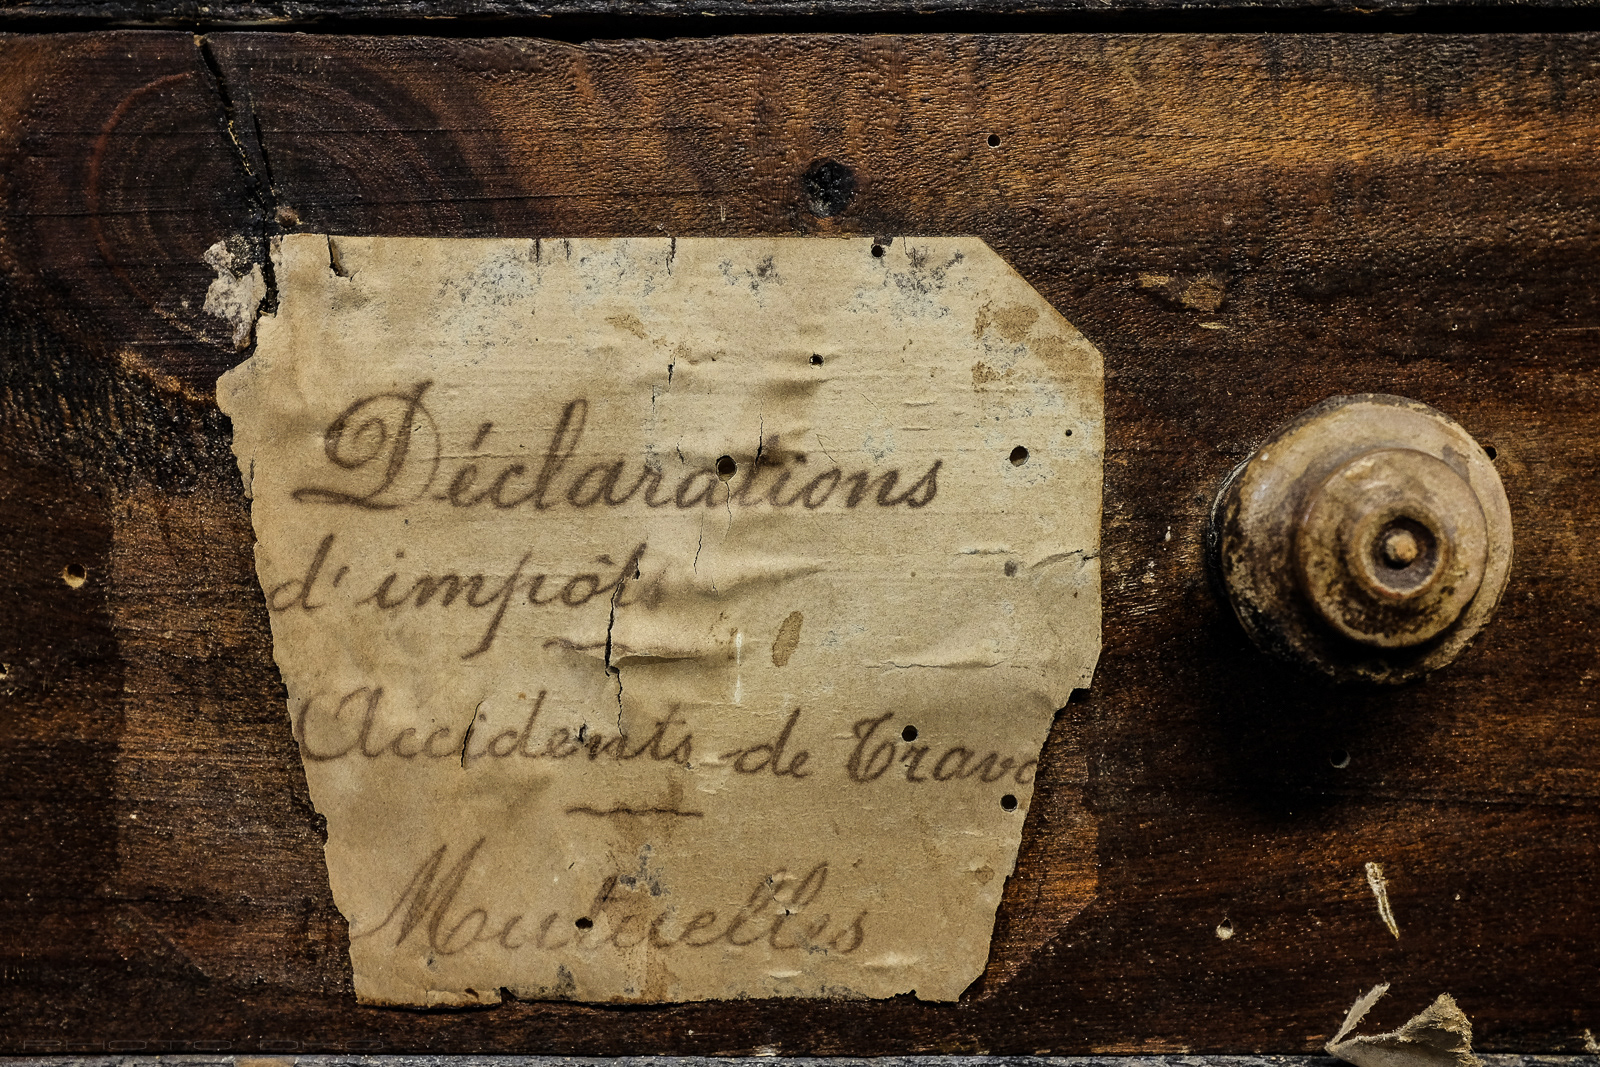 Déclarations
d'impôts
Accidents de Trava
Mutuelles